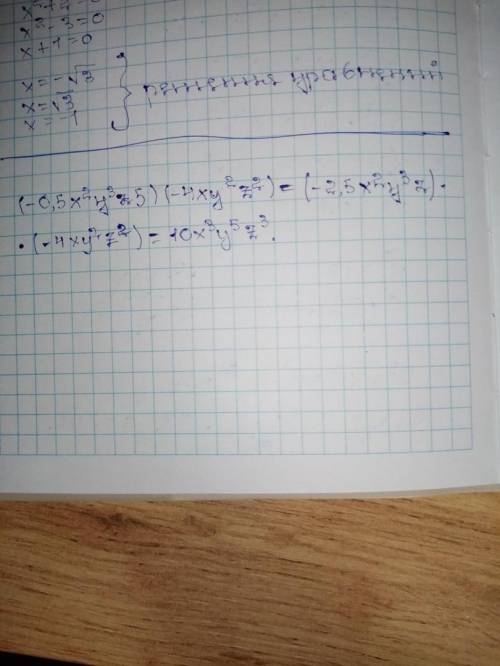 x² - 3 = 0
x + 1 = 0
x = -√3
x = √3
x = -1
} решения уравнений
(-0,5x²y³z5)(-4xy²z²) = (-2,5x²y³z) ·
· (-4xy²z²) = 10x³y⁵z³.